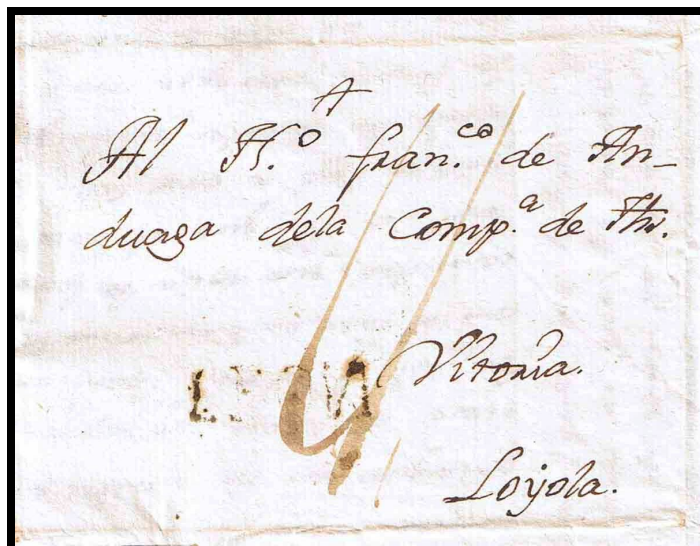 Al H.º Fran.co de An-
duaga dela Comp.a de Jhs.
Vitoria.
Loyola.